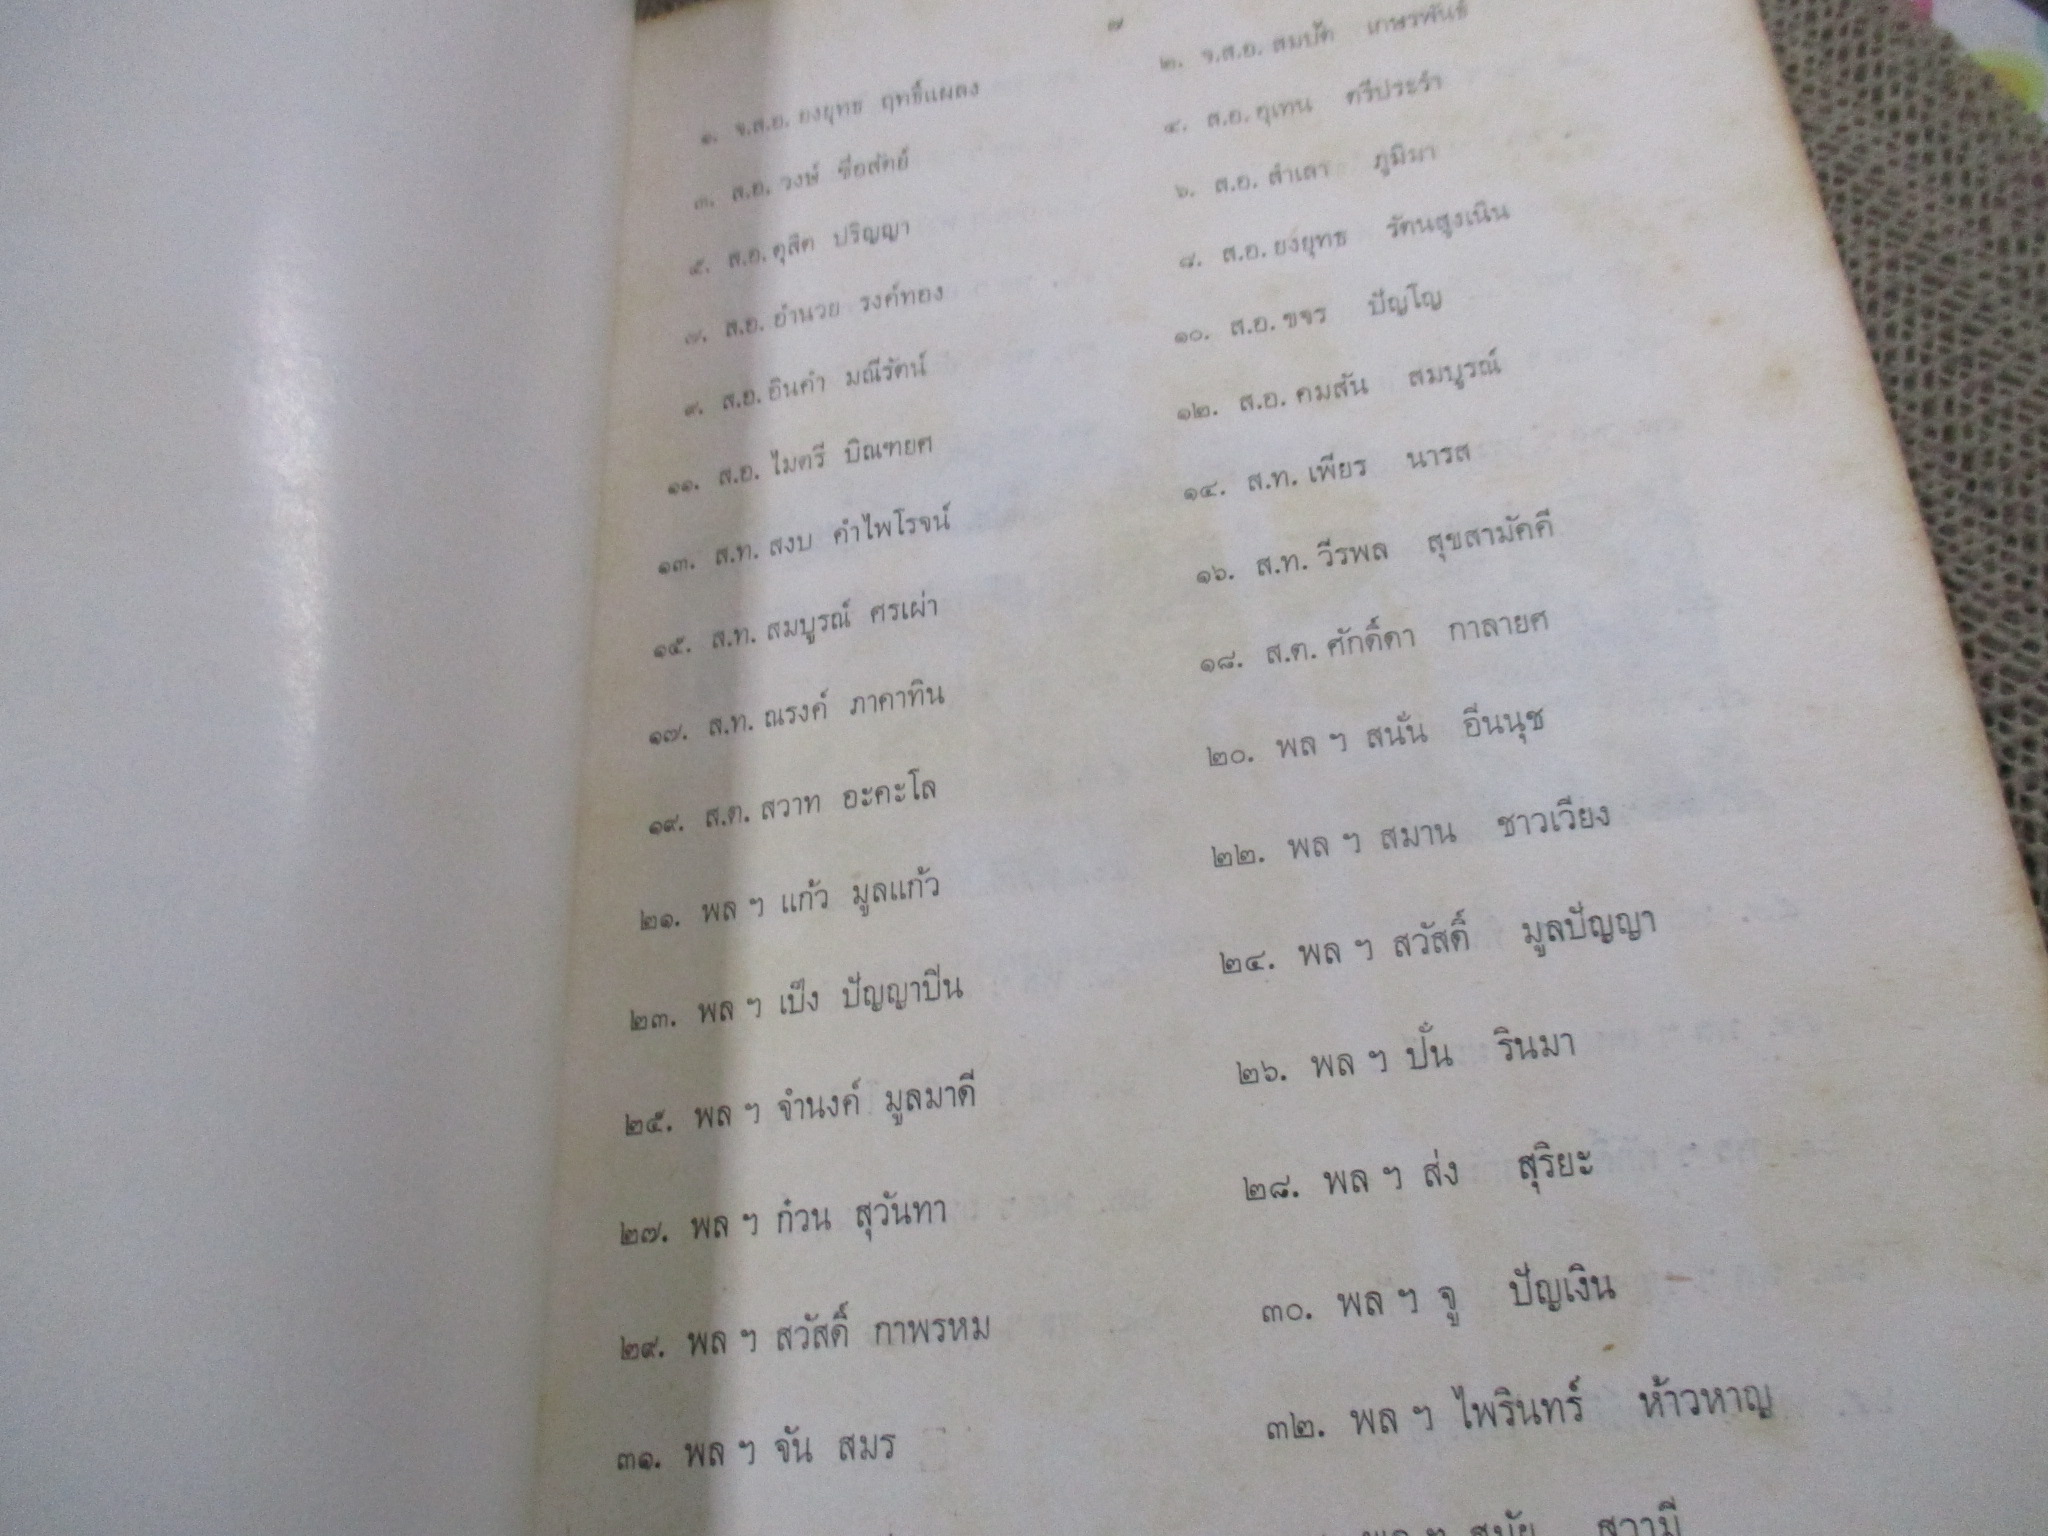 ๗
๑. จ.ส.อ. ยงยุทธ ฤทธิ์แผลง ๒. จ.ส.อ. สมบัติ เกษรพันธ์
๓. ส.อ. วงษ์ ซื่อสัตย์ ๔. ส.อ. อุเทน ตรีประรำ
๕. ส.อ. ดุสิต ปริญญา ๖. ส.อ. สำเลา ภูมิมา
๗. ส.อ. อำนวย รงค์ทอง ๘. ส.อ. ยงยุทธ รัตนสูงเนิน
๙. ส.อ. อินคำ มณีรัตน์ ๑๐. ส.อ. ขจร ปัญโญ
๑๑. ส.อ. ไมตรี บิณฑยศ ๑๒. ส.อ. คมสัน สมบูรณ์
๑๓. ส.ท. สงบ คำไพโรจน์ ๑๔. ส.ท. เพียร นารส
๑๕. ส.ท. สมบูรณ์ ศรเผ่า ๑๖. ส.ท. วีรพล สุขสามัคคี
๑๗. ส.ท. ณรงค์ ภาคาทิน ๑๘. ส.ต. ศักดิ์ดา กาลายศ
๑๙. ส.ต. สวาท อะคะโล ๒๐. พล ฯ สนั่น อินนุช
๒๑. พล ฯ แก้ว มูลแก้ว ๒๒. พล ฯ สมาน ชาวเวียง
๒๓. พล ฯ เป็ง ปัญญาปิ่น ๒๔. พล ฯ สวัสดิ์ มูลปัญญา
๒๕. พล ฯ จำนงค์ มูลมาดี ๒๖. พล ฯ ปั่น รินมา
๒๗. พล ฯ ก๋วน สุวันทา ๒๘. พล ฯ ส่ง สุริยะ
๒๙. พล ฯ สวัสดิ์ กาพรหม ๓๐. พล ฯ จู ปัญเงิน
๓๑. พล ฯ จัน สมร ๓๒. พล ฯ ไพรินทร์ ห้าวหาญ